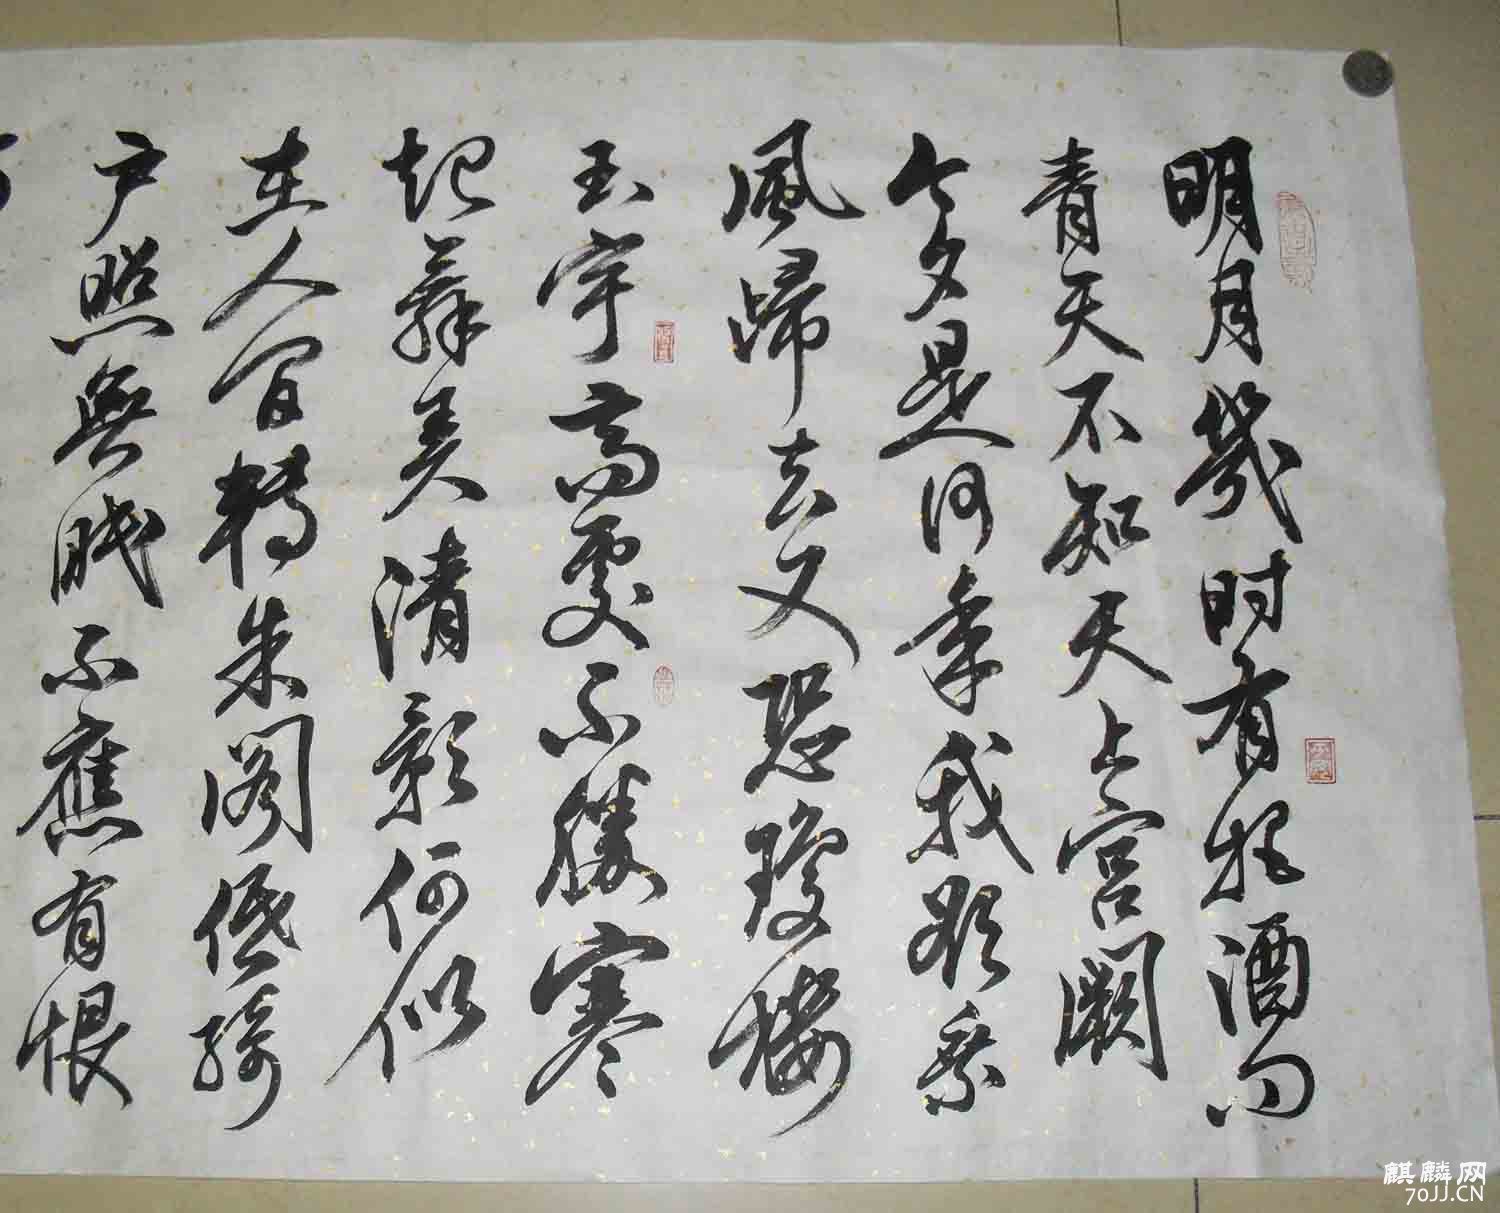 明月幾时有把酒问
青天不知天上宫阙
今夕是何年我欲乘
風歸去又恐瓊楼
玉宇高處不勝寒
起舞弄清影何似
在人间轉朱阁低绮
户照無眠不應有恨
麒麟网
70JJ.CN